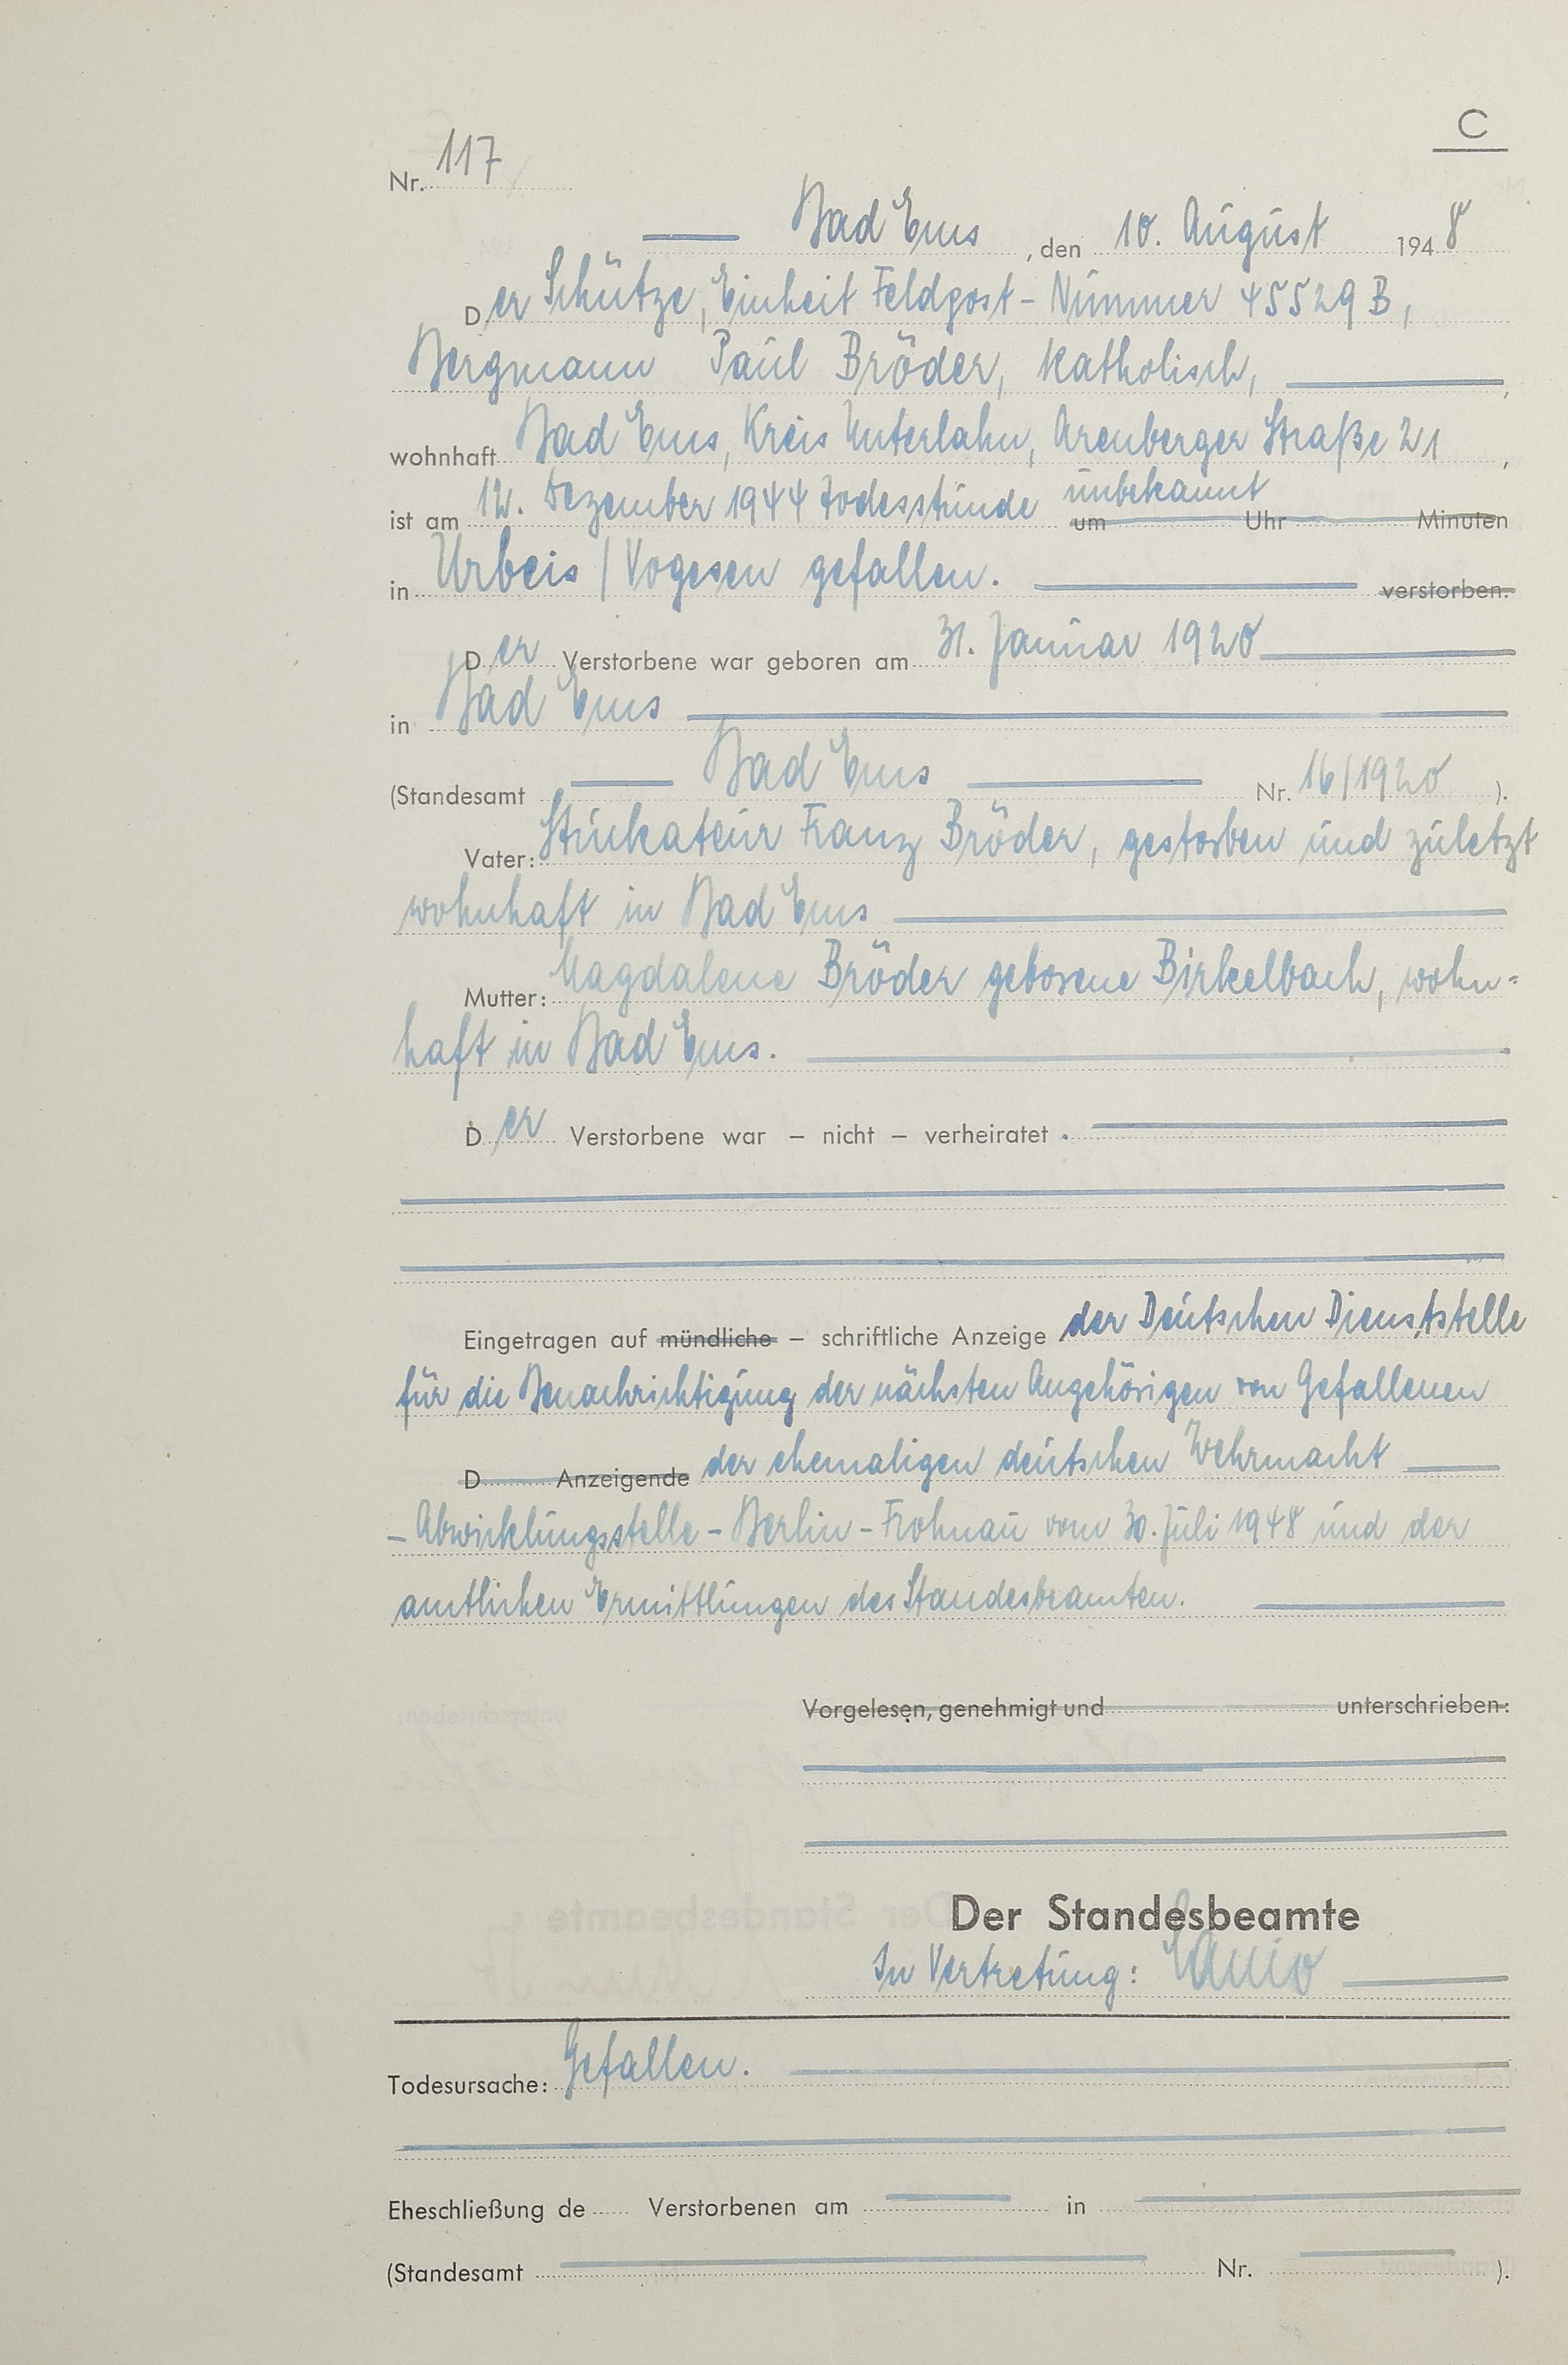 C
Nr. 117
Bad Ems, den 10. August 1948
Der Schütze, Einheit Feldpost-Nummer 45529 B,
Bergmann Paul Bröder, katholisch,
wohnhaft Bad Ems, Kreis Unterlahn, Arenberger Straße 21,
ist am 12. Dezember 1944 Todesstunde unbekannt um Uhr Minuten
in Urbeis / Vogesen gefallen. verstorben.
Der Verstorbene war geboren am 31. Januar 1920
in Bad Ems
(Standesamt Bad Ems Nr. 16/1920 ).
Vater: Stukateur Franz Bröder, gestorben und zuletzt
wohnhaft in Bad Ems
Mutter: Magdalene Bröder geborene Birkelbach, wohn=
haft in Bad Ems.
Der Verstorbene war – nicht – verheiratet.
Eingetragen auf mündliche – schriftliche Anzeige der Deutschen Dienststelle
für die Benachrichtigung der nächsten Angehörigen von Gefallenen
D Anzeigende der ehemaligen deutschen Wehrmacht
- Abwicklungsstelle - Berlin - Frohnau vom 30. Juli 1948 und der
amtlichen Ermittlungen des Standesbeamten.
Vorgelesen, genehmigt und unterschrieben:
Der Standesbeamte
In Vertretung:
Todesursache: Gefallen.
Eheschließung de Verstorbenen am in
(Standesamt Nr. ).